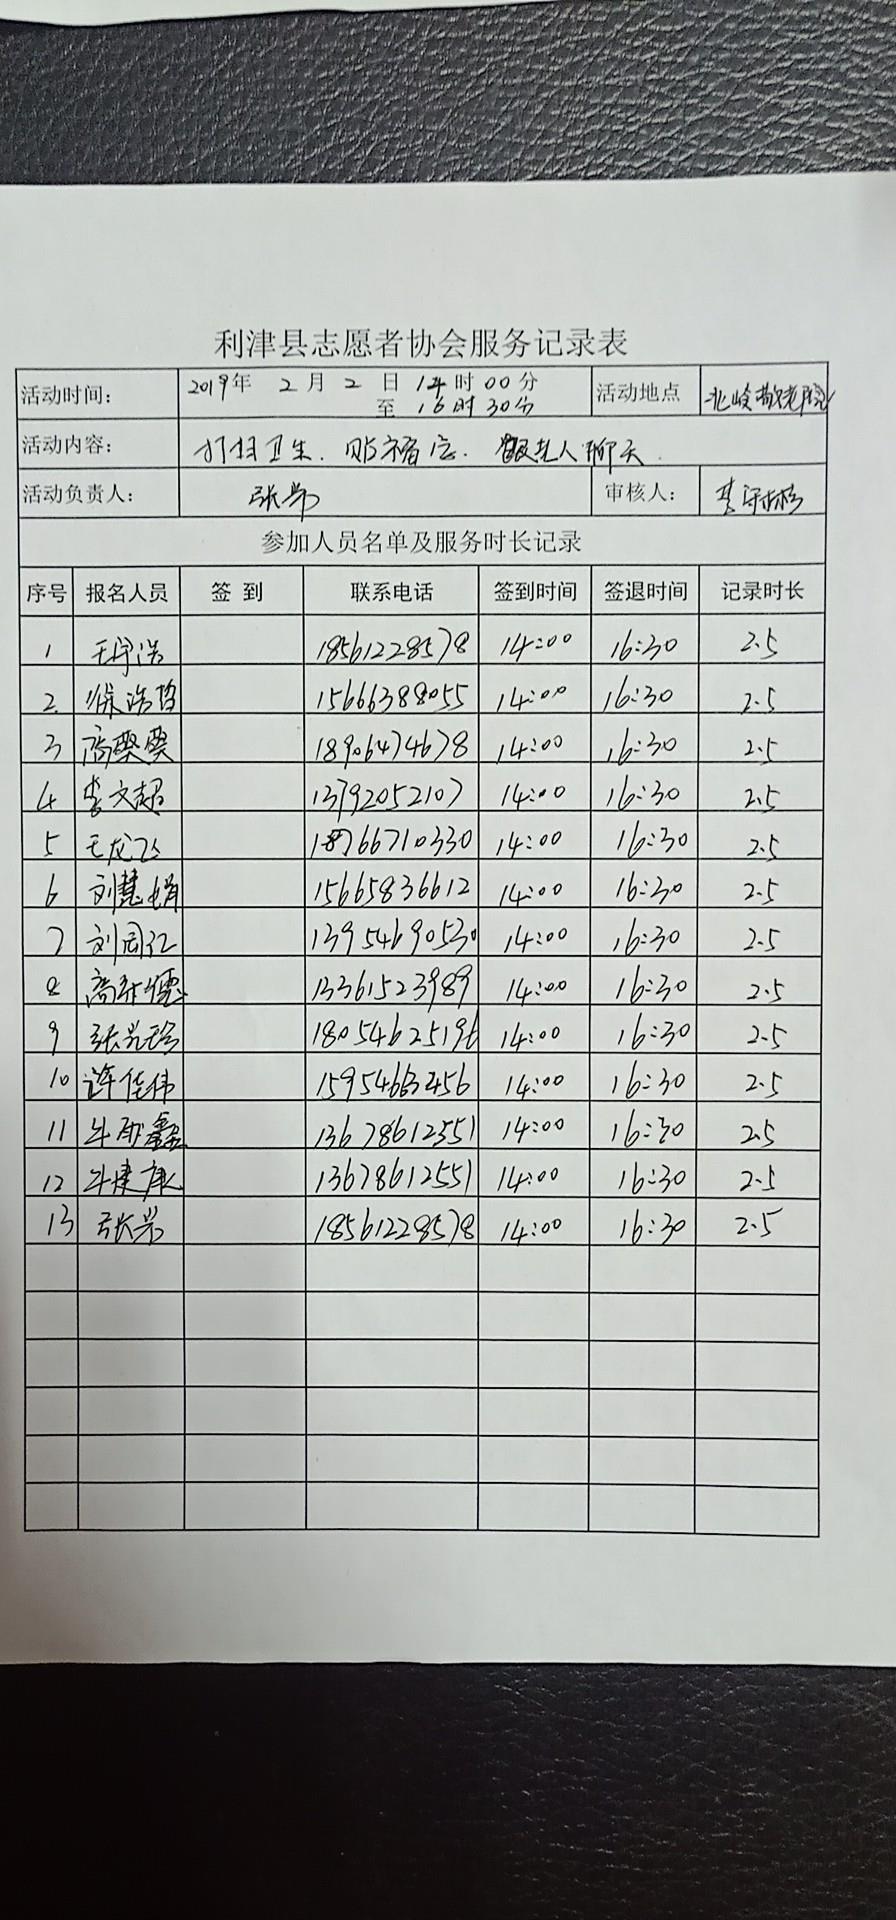 利津县志愿者协会服务记录表
活动时间： 2019年 2月 2日 14时00分 活动地点 北岭敬老院
至 16时30分
活动内容： 打扫卫生. 贴福字. 老人聊天.
活动负责人： 张 审核人： 李
参加人员名单及服务时长记录
序号 报名人员 签到 联系电话 签到时间 签退时间 记录时长
1 王宇浩 18561228578 14:00 16:30 2.5
2 徐浩哲 15666388055 14:00 16:30 2.5
3 高 18906474678 14:00 16:30 2.5
4 李文超 13792052107 14:00 16:30 2.5
5 王龙飞 18766710330 14:00 16:30 2.5
6 刘慧娟 15665836612 14:00 16:30 2.5
7 刘同江 13954690530 14:00 16:30 2.5
8 高 13361523989 14:00 16:30 2.5
9 张 18054625196 14:00 16:30 2.5
10 许佳伟 15954663456 14:00 16:30 2.5
11 牛 鑫 13678612551 14:00 16:30 2.5
12 牛建康 13678612551 14:00 16:30 2.5
13 张 18561228578 14:00 16:30 2.5